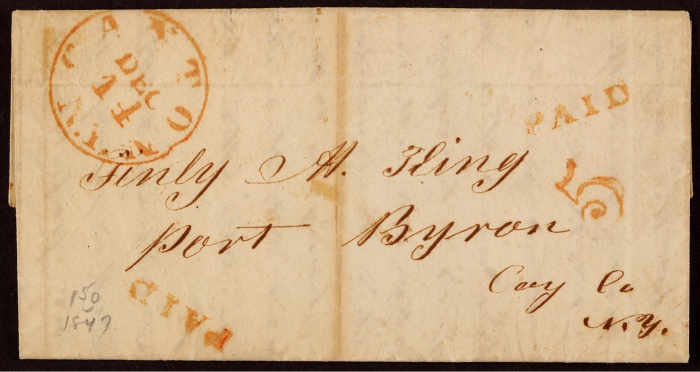 CANTON N.Y.
DEC
11
PAID
5
Finly M. King
Port Byron
Cay Co
N.Y.
PAID
150
1847